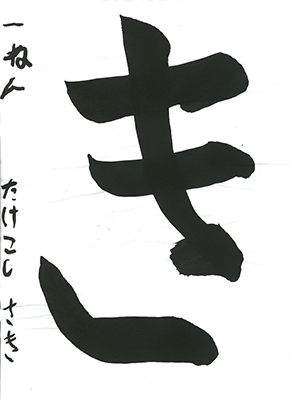 き
一ねん たけこし さき